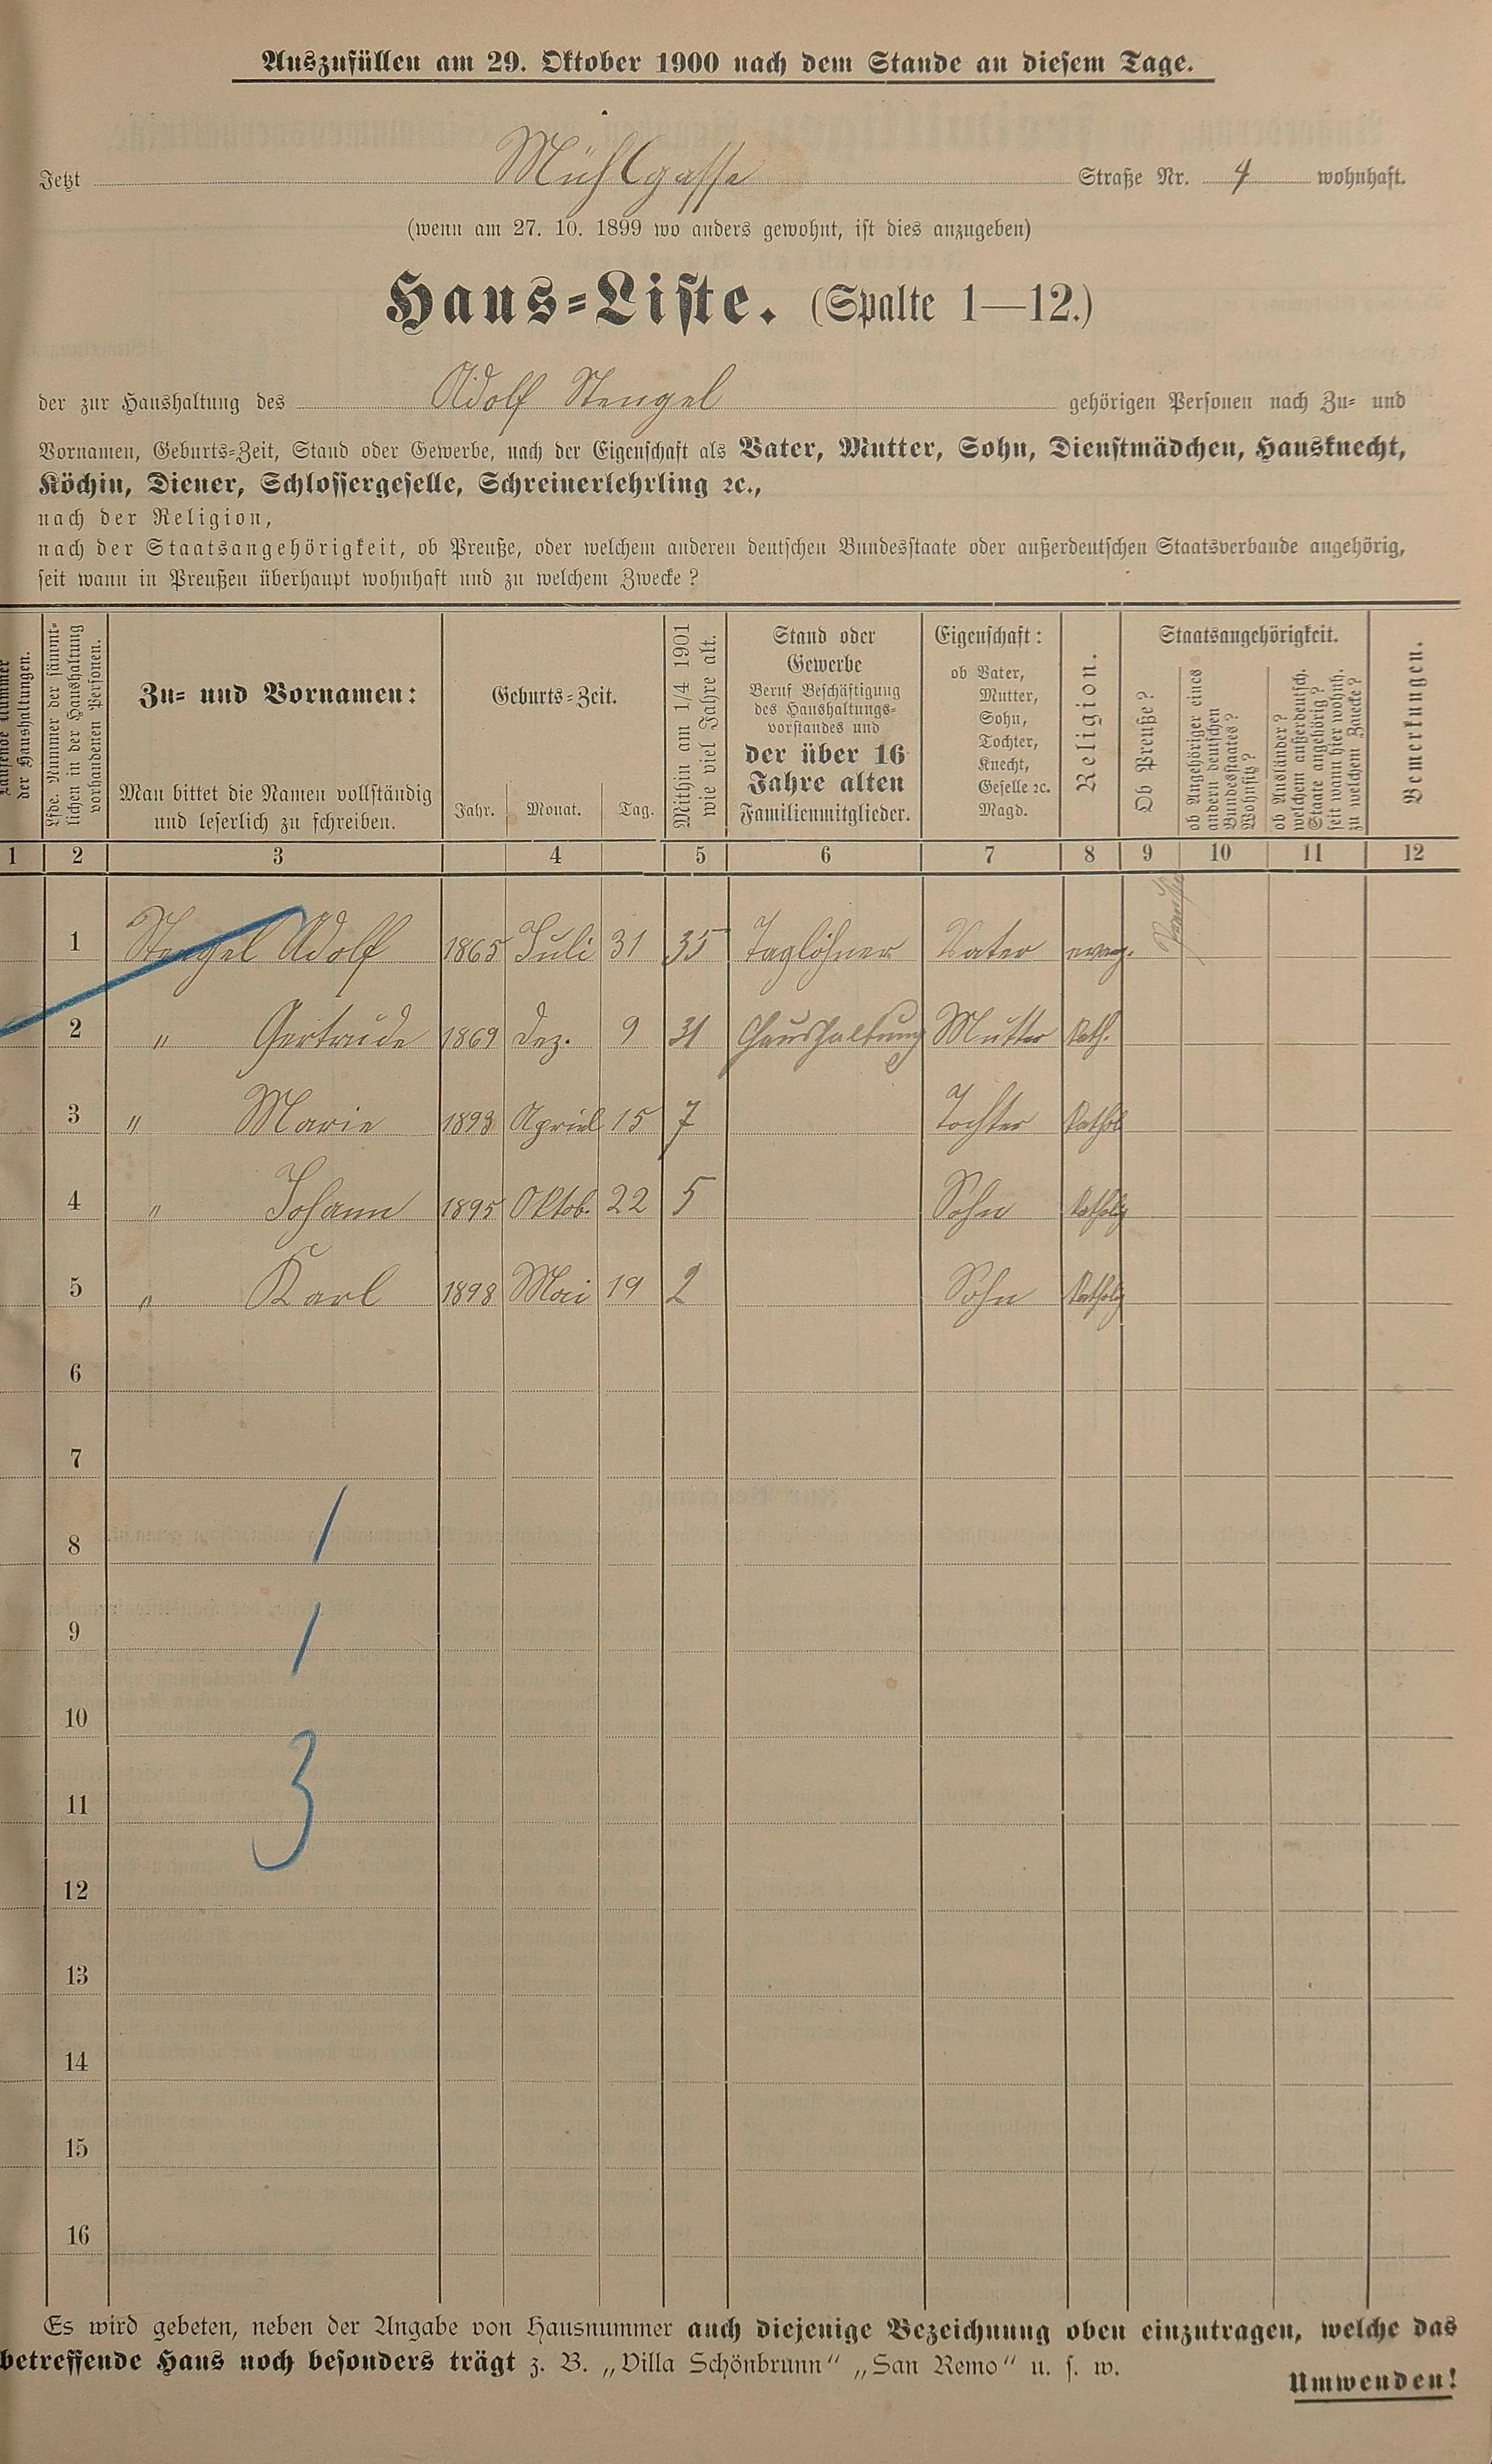 Auszufüllen am 29. Oktober 1900 nach dem Stande an diesem Tage.
Jetzt Mühlgasse Straße Nr. 4 wohnhaft.
(wenn am 27. 10. 1899 wo anders gewohnt, ist dies anzugeben)
Haus-Liste. (Spalte 1—12.)
der zur Haushaltung des Adolf Stengel gehörigen Personen nach Zu- und
Vornamen, Geburts-Zeit, Stand oder Gewerbe, nach der Eigenschaft als Vater, Mutter, Sohn, Dienstmädchen, Hausknecht,
Köchin, Diener, Schlossergeselle, Schreinerlehrling ꝛc.,
nach der Religion,
nach der Staatsangehörigkeit, ob Preuße, oder welchem anderen deutschen Bundesstaate oder außerdeutschen Staatsverbande angehörig,
seit wann in Preußen überhaupt wohnhaft und zu welchem Zwecke?
Laufende Nummer
der Haushaltungen.
Lfde. Nummer der sämmt-
lichen in der Haushaltung
vorhandenen Personen.
Zu- und Vornamen:
Man bittet die Namen vollständig
und leserlich zu schreiben.
Geburts-Zeit.
Jahr. Monat. Tag.
Mithin am 1/4 1901
wie viel Jahre alt.
Stand oder
Gewerbe
Beruf Beschäftigung
des Haushaltungs-
vorstandes und
der über 16
Jahre alten
Familienmitglieder.
Eigenschaft:
ob Vater,
Mutter,
Sohn,
Tochter,
Knecht,
Geselle ꝛc.
Magd.
Religion.
Staatsangehörigkeit.
Ob Preuße?
ob Angehöriger eines
andern deutschen
Bundesstaates?
Wohnsitz?
ob Ausländer?
welchem außerdeutsch.
Staate angehörig?
seit wann hier wohnh.
zu welchem Zwecke?
Bemerkungen.
1 2 3 4 5 6 7 8 9 10 11 12
1 Stengel Adolf 1865 Juli 31 35 Taglöhner Vater evang. Preuße
2 " Gertrude 1869 Dez. 9 31 Haushaltung Mutter Kath.
3 " Marie 1893 Apriel 15 7 Tochter Kathol
4 " Johann 1895 Oktob. 22 5 Sohn Katholy
5 " Karl 1898 Mai 19 2 Sohn Katholy
6
7
8 1
9 1
10
11 3
12
13
14
15
16
Es wird gebeten, neben der Angabe von Hausnummer auch diejenige Bezeichnung oben einzutragen, welche das
betreffende Haus noch besonders trägt z. B. „Villa Schönbrunn“ „San Remo“ u. s. w.
Umwenden!